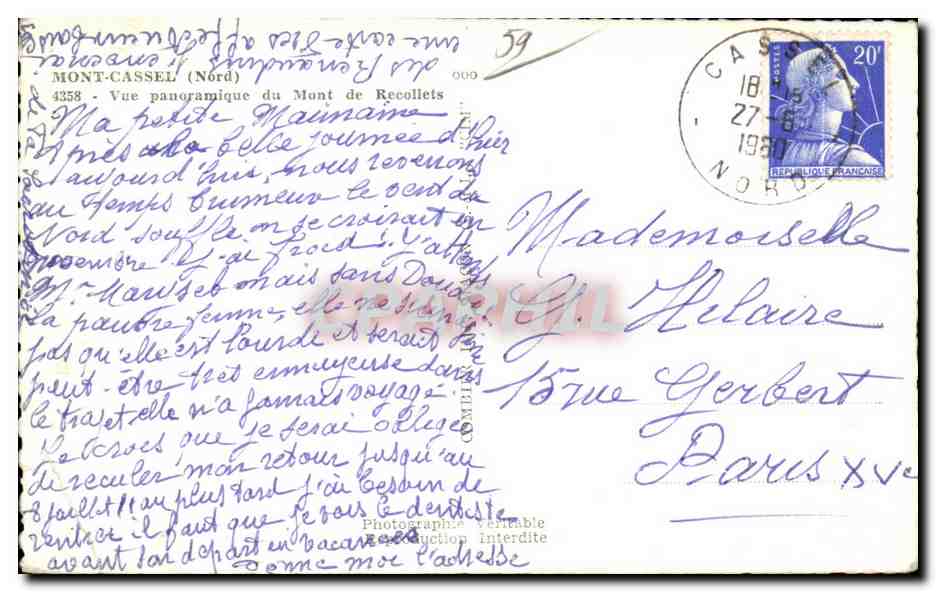 MONT-CASSEL (Nord)
4358 - Vue panoramique du Mont de Recollets
59
Ma petite
Après la belle journée d'hier
aujourd'hui, nous revenons
au temps brumeux le vent du
Nord souffle on se croirait en
novembre et j'ai froid! J'attends
mais sans Doude
la pauvre femme, elle
pas qu'elle est lourde et serait
peut-être très ennuyeuse dans
le trajet elle n'a jamais voyagé.
Je crois que je serai obligée
de reculer mon retour jusqu'au
8 juillet!! au plus tard j'ai besoin de
rentrer il faut que je vois le dentiste
avant son départ en vacances
Donne moi l'adresse
des Renaudins
une carte
Photographie Véritable
Reproduction Interdite
CASSEL
27-6
1960
NORD
POSTES
20f
REPUBLIQUE FRANCAISE
Mademoiselle
G. Hilaire
15 rue Gerbert
Paris XVe